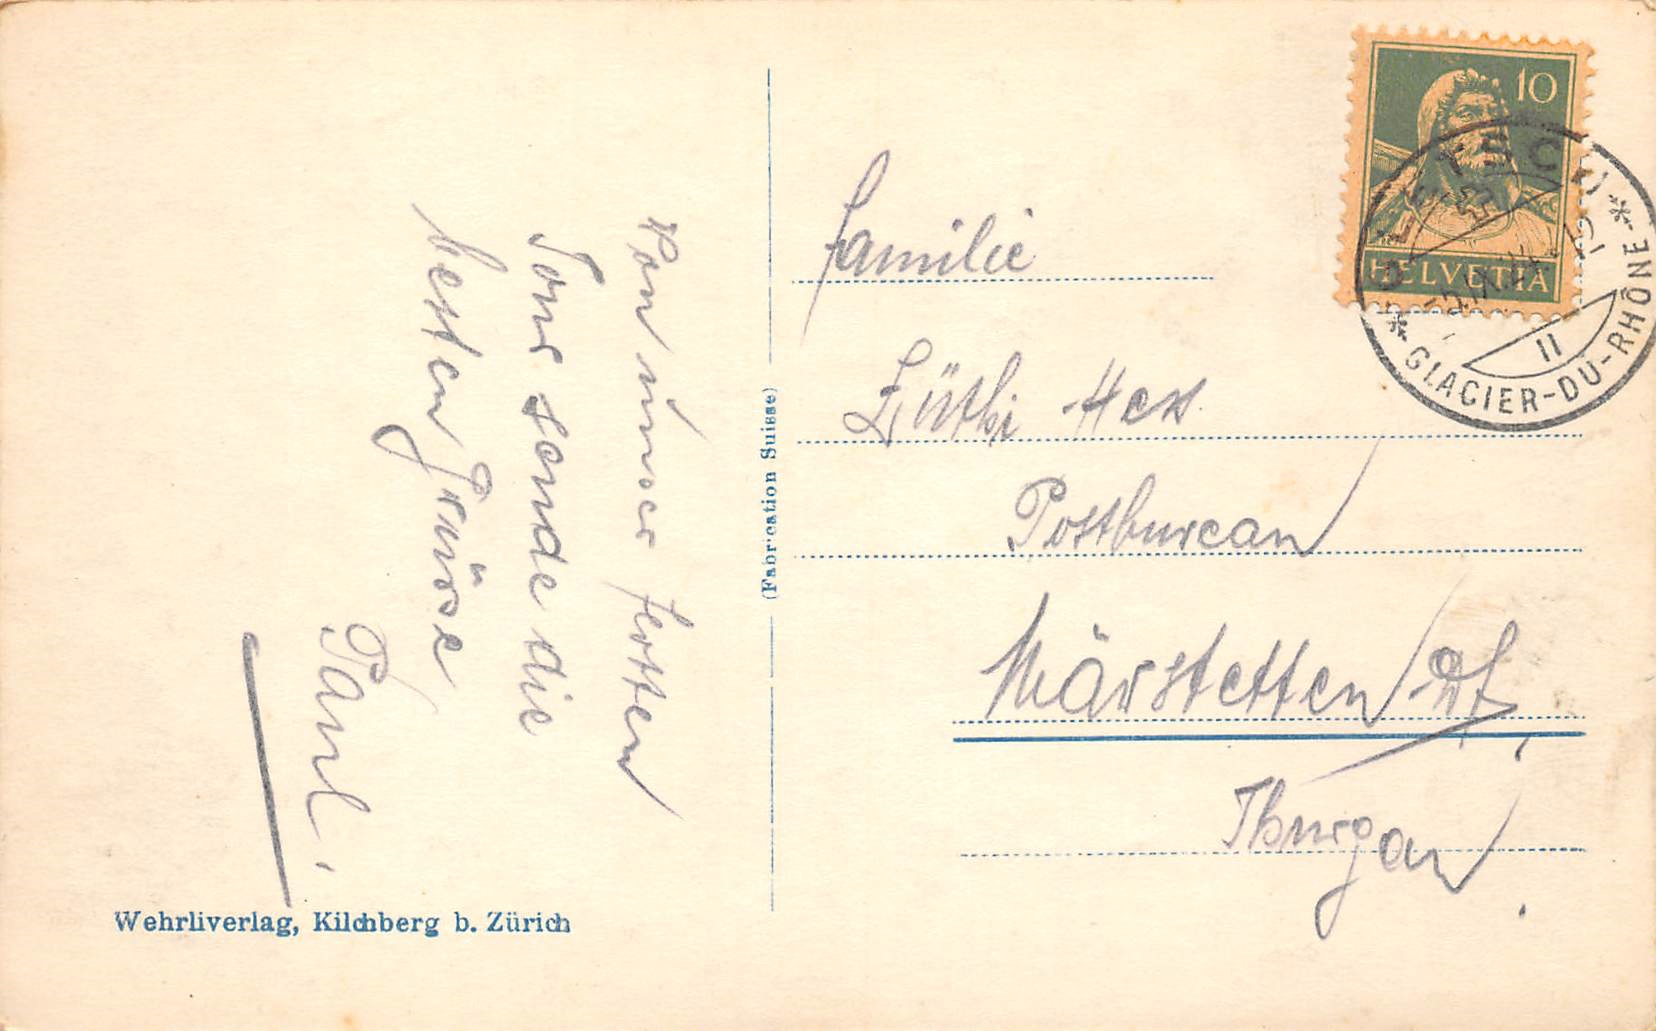 Von unser ferten
Tour sende die
besten Grüsse
Paul.
Wehrliverlag, Kilchberg b. Zürich
(Fabrication Suisse)
10
HELVETIA
GLETSCH
* GLACIER-DU-RHÔNE *
II
Familie
Lüthi-Hess
Postbureau
Märstetten Df,
Thurgau.